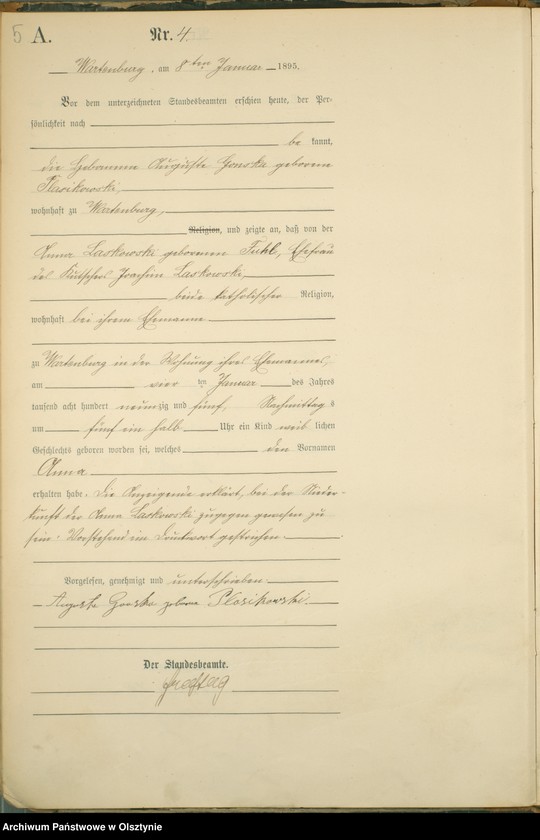 5 A. Nr. 4
Wartenburg, am 8ten Januar 1895.
Vor dem unterzeichneten Standesbeamten erschien heute, der Per-
sönlichkeit nach
be kannt,
die Hebamme Auguste Gonska geborene
Plasikowski,
wohnhaft zu Wartenburg,
Religion, und zeigte an, daß von der
Anna Laskowski geborenen Fuhl, Ehefrau
des Kutschers Joachim Laskowski,
beide katholischer Religion,
wohnhaft bei ihrem Ehemanne
zu Wartenburg in der Wohnung ihres Ehemannes,
am vier ten Januar des Jahres
tausend acht hundert neunzig und fünf, Nachmittag s
um fünf ein halb Uhr ein Kind weib lichen
Geschlechts geboren worden sei, welches den Vornamen
Anna
erhalten habe. Die Anzeigende erklärt, bei der Nieder-
kunft der Anna Laskowski zugegen gewesen zu
sein. Vorstehend ein Druckwort gestrichen.
Vorgelesen, genehmigt und unterschrieben
Auguste Gonska geborene Plasikowski.
Der Standesbeamte.
Archiwum Państwowe w Olsztynie